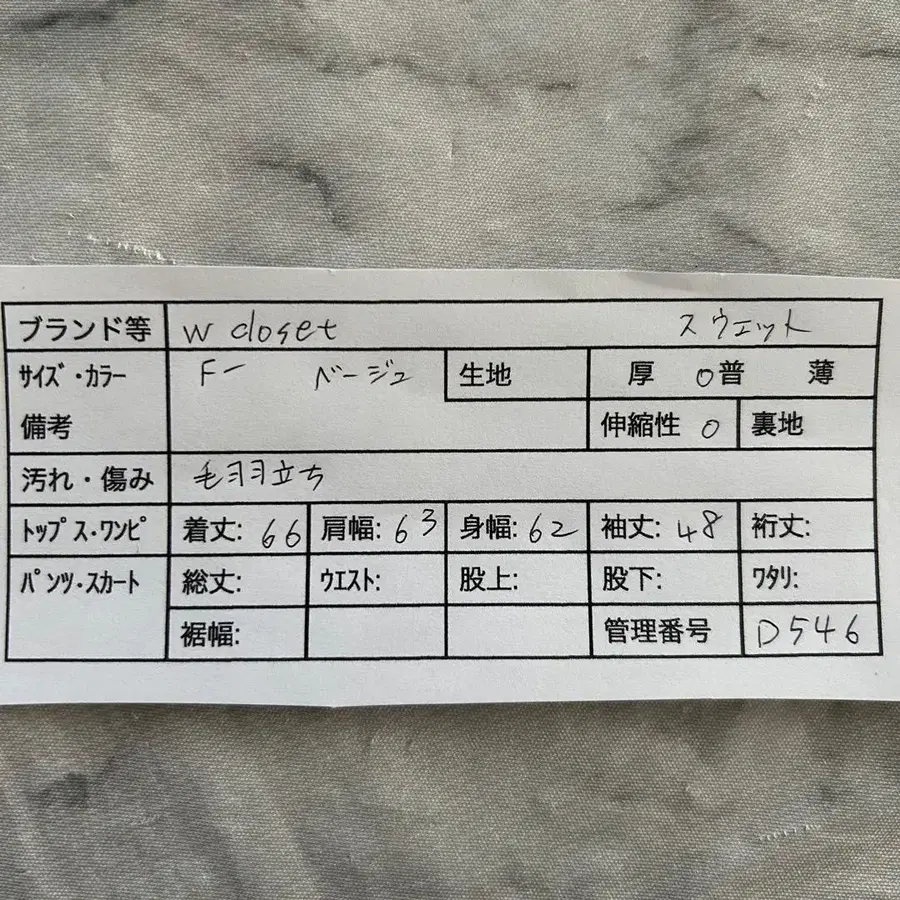 ブランド等 w closet スウェット
サイズ・カラー Fー ベージュ 生地 厚 o普 薄
備考 伸縮性 o 裏地
汚れ・傷み 毛羽立ち
トップス・ワンピ 着丈: 66 肩幅: 63 身幅: 62 袖丈: 48 裄丈:
パンツ・スカート 総丈: ウエスト: 股上: 股下: ワタリ:
裾幅: 管理番号 D546